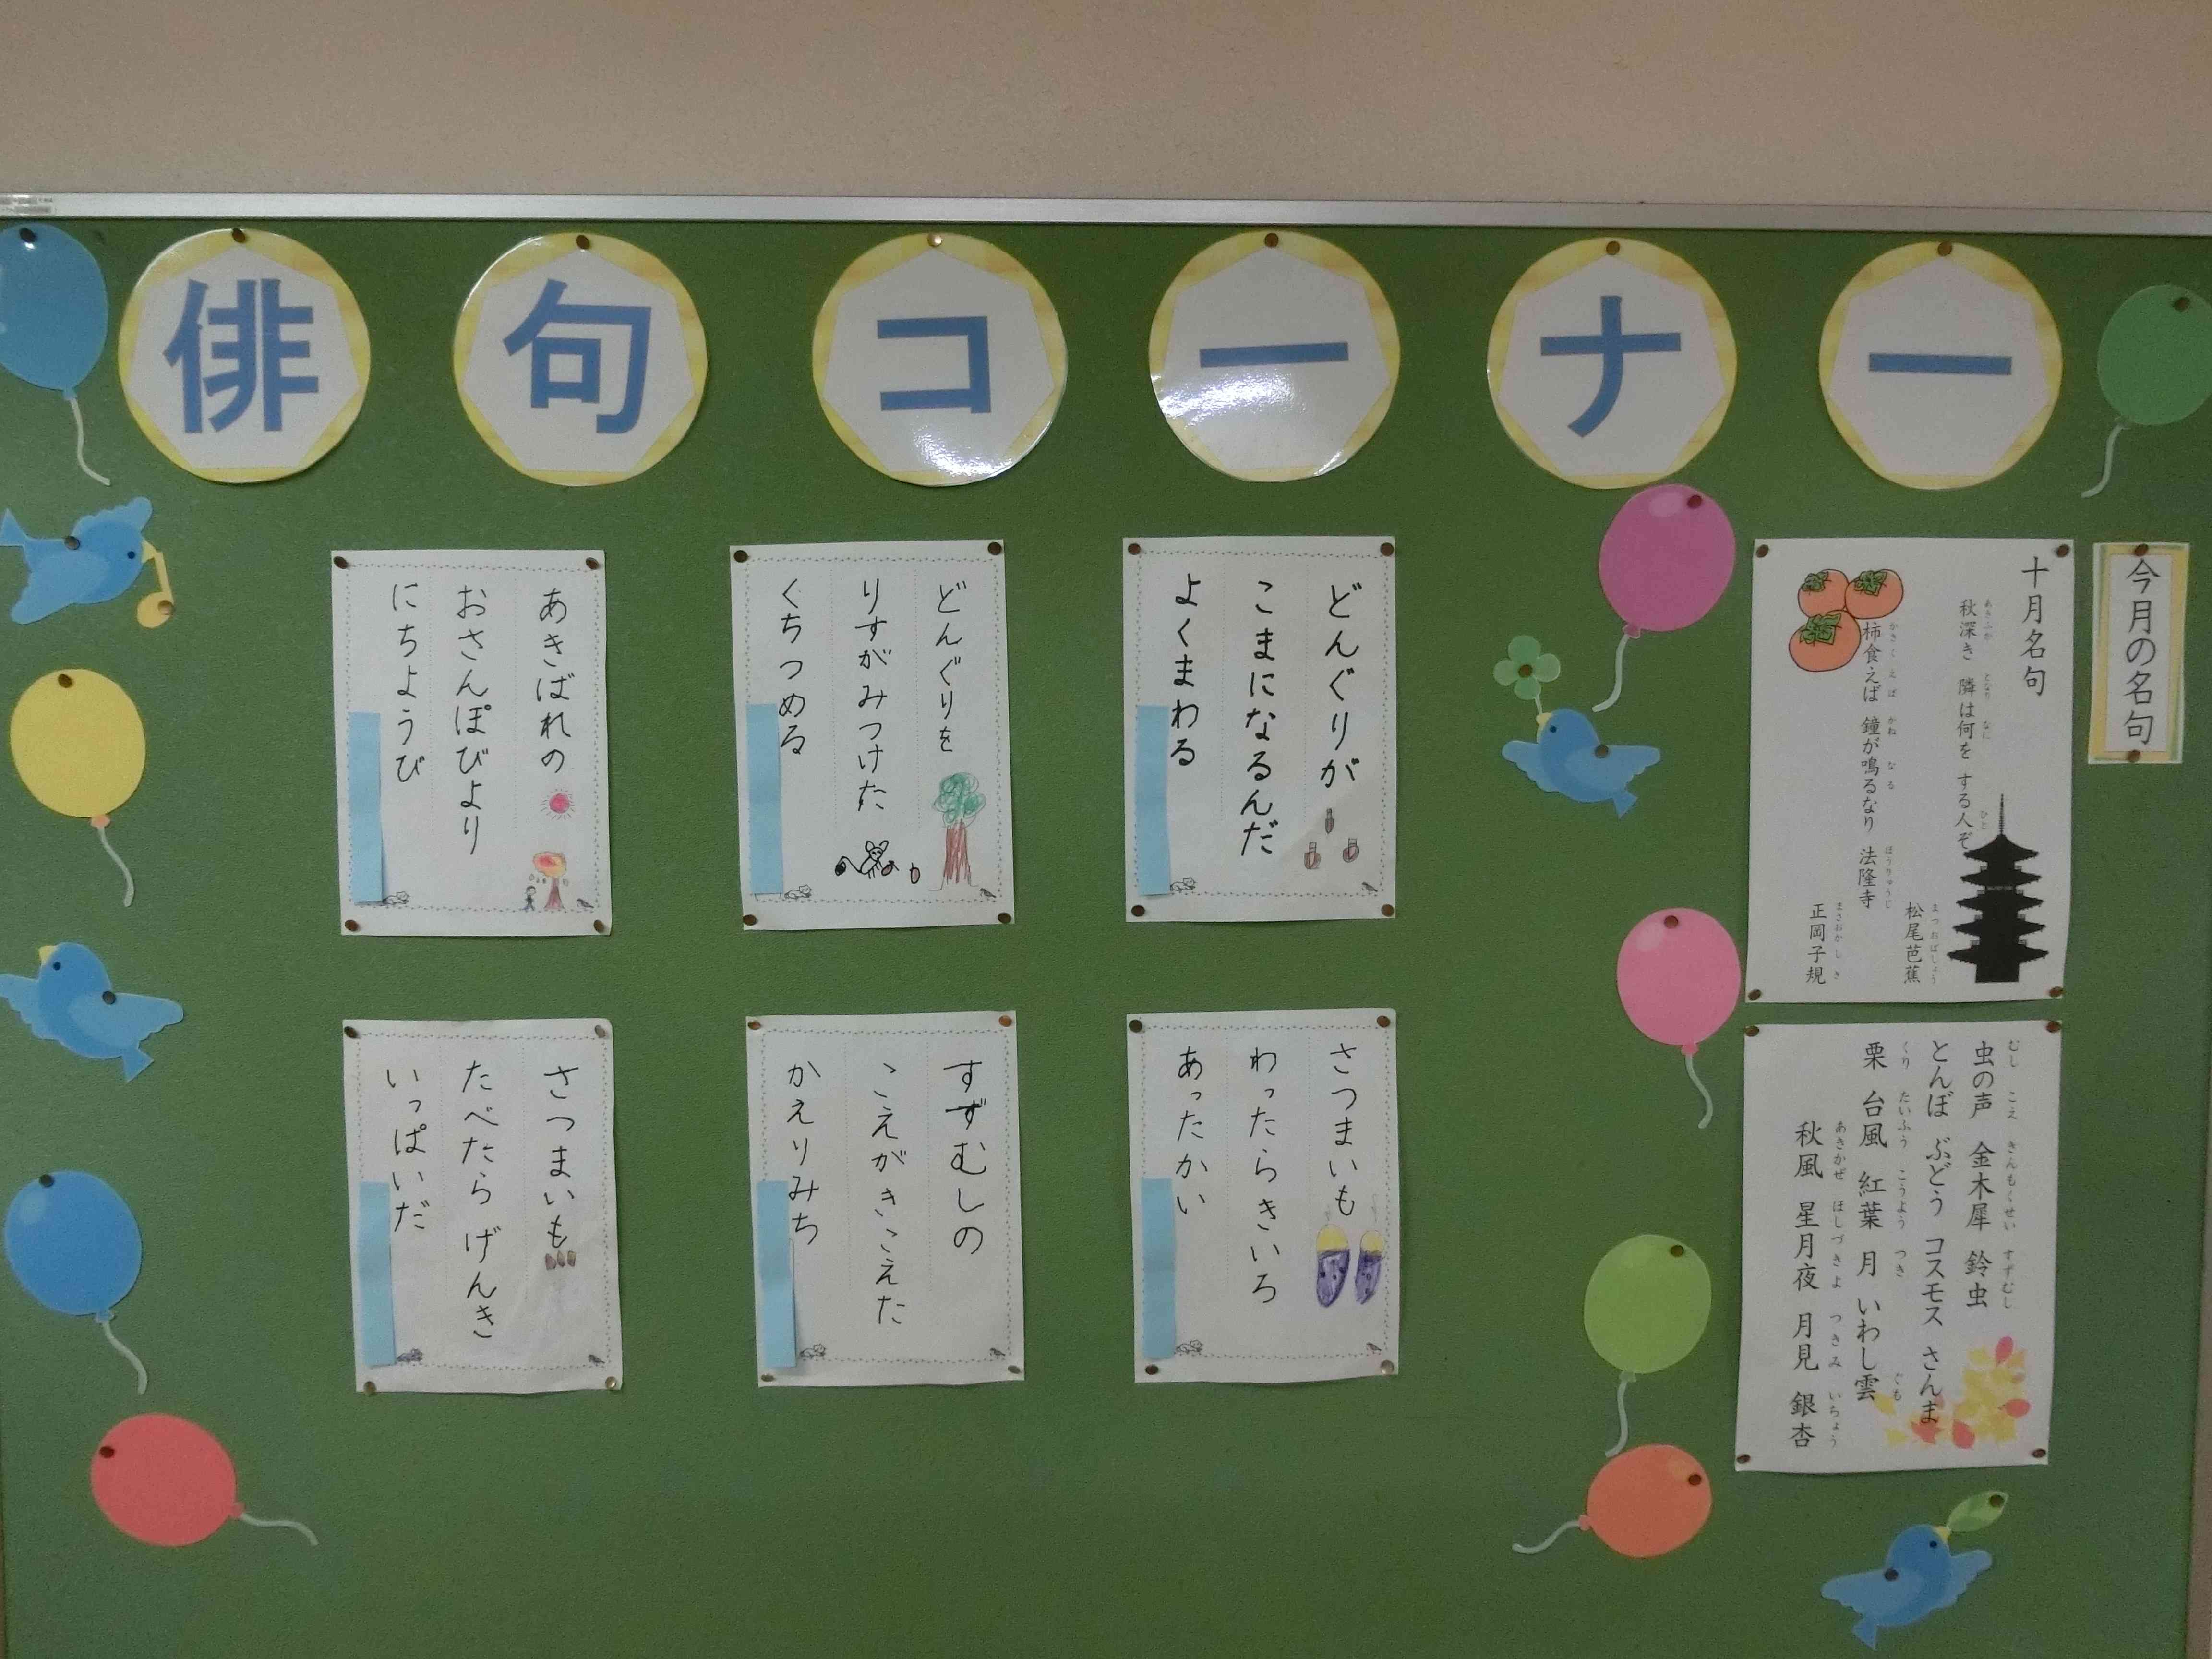 俳句コーナー
今月の名句
十月名句
秋深き 隣は何を する人ぞ
松尾芭蕉
柿食えば 鐘が鳴るなり 法隆寺
正岡子規
虫の声 金木犀 鈴虫
とんぼ ぶどう コスモス さんま
栗 台風 紅葉 月 いわし雲
秋風 星月夜 月見 銀杏
どんぐりが
こまになるんだ
よくまわる
どんぐりを
りすがみつけた
くちつめる
あきばれの
おさんぽびより
にちようび
さつまいも
わったらきいろ
あったかい
すずむしの
こえがきこえた
かえりみち
さつまいも
たべたら げんき
いっぱいだ